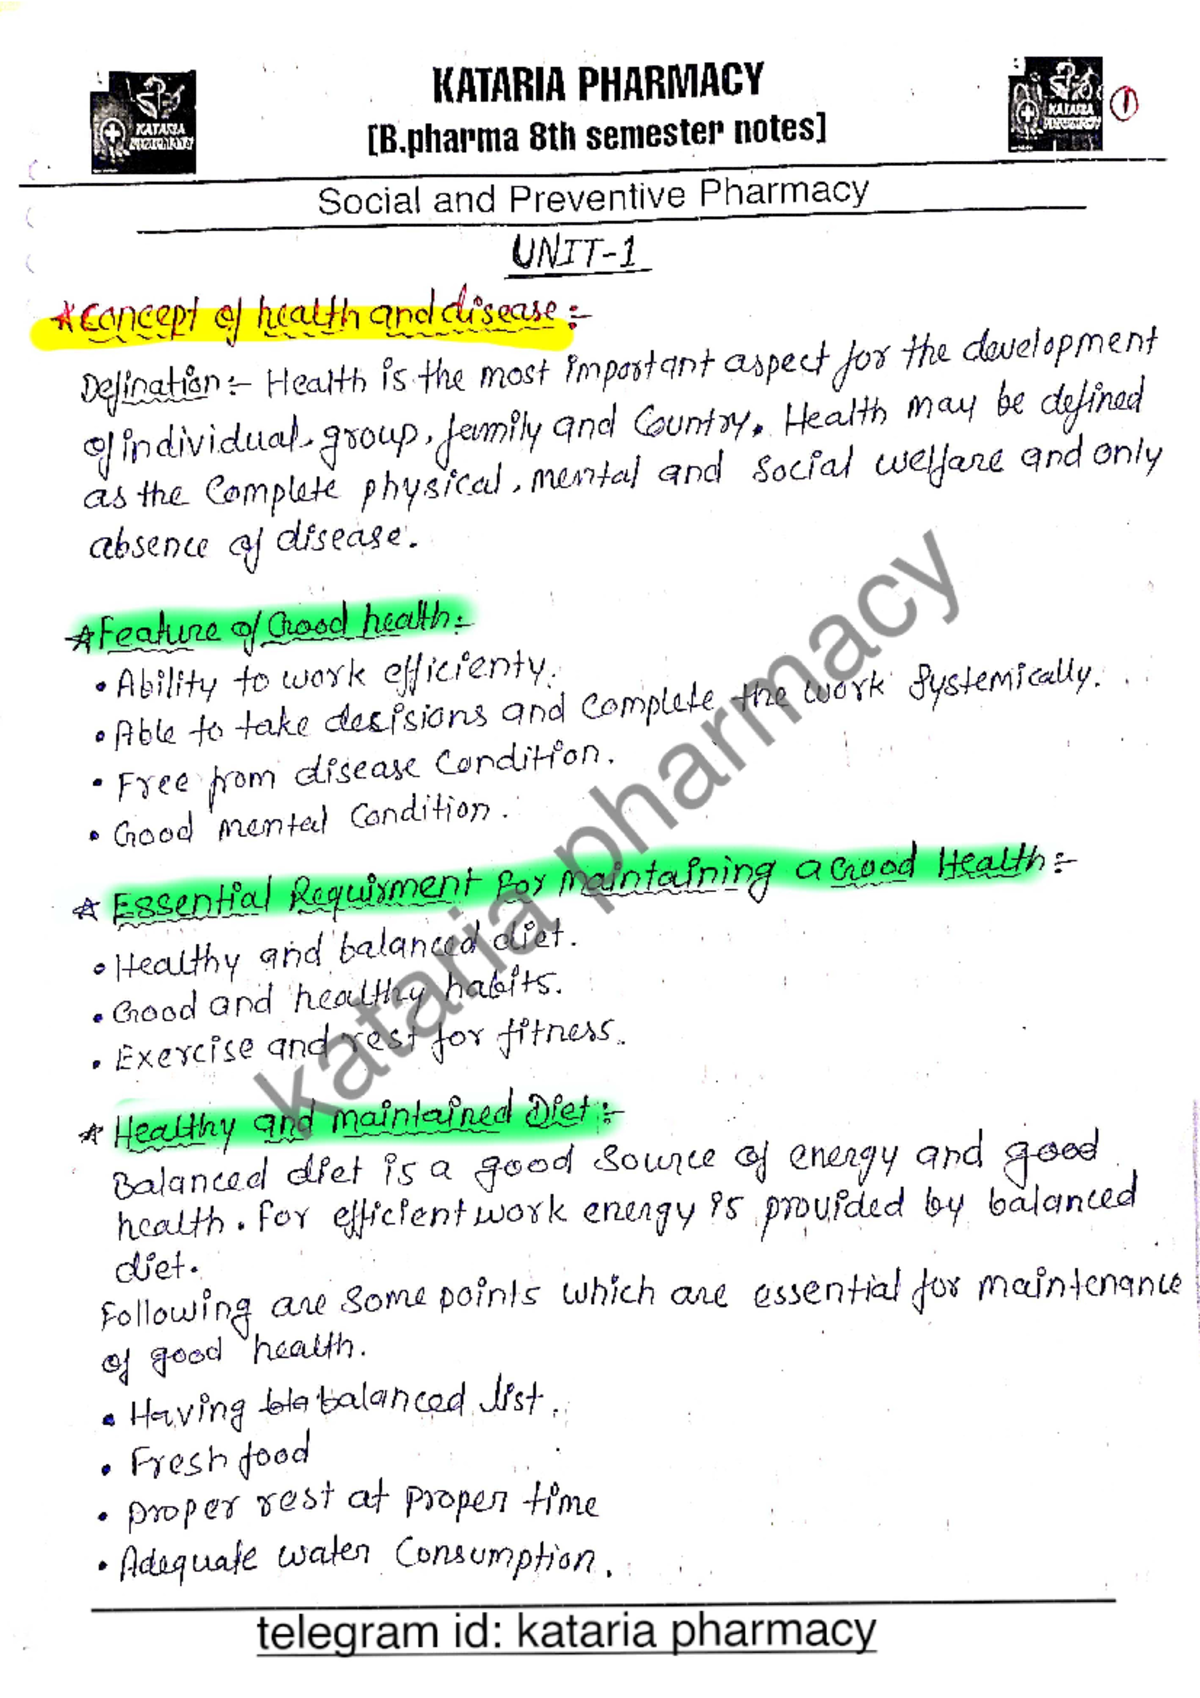 KATARIA PHARMACY
[B.pharma 8th semester notes]
KATARIA
KATARIA
1
Social and Preventive Pharmacy
UNIT-1
* Concept of health and disease :-
Defination :- Health is the most important aspect for the development
of individual, group, family and Country. Health may be defined
as the Complete physical, mental and social welfare and only
absence of disease.
* Feature of Good health :-
• Ability to work efficienty.
• Able to take decisions and complete the work Systemically.
• Free from disease Condition.
• Good mental Condition.
* Essential Requirment for maintaining a Good Health :-
• Healthy and balanced diet.
• Good and healthy habits.
• Exercise and rest for fitness.
* Healthy and maintained Diet :-
Balanced diet is a good source of energy and good
health. For efficient work energy is provided by balanced
diet.
Following are some points which are essential for maintenance
of good health.
• Having balanced list.
• Fresh food
• proper rest at proper time
• Adequate water Consumption.
kataria pharmacy
telegram id: kataria pharmacy